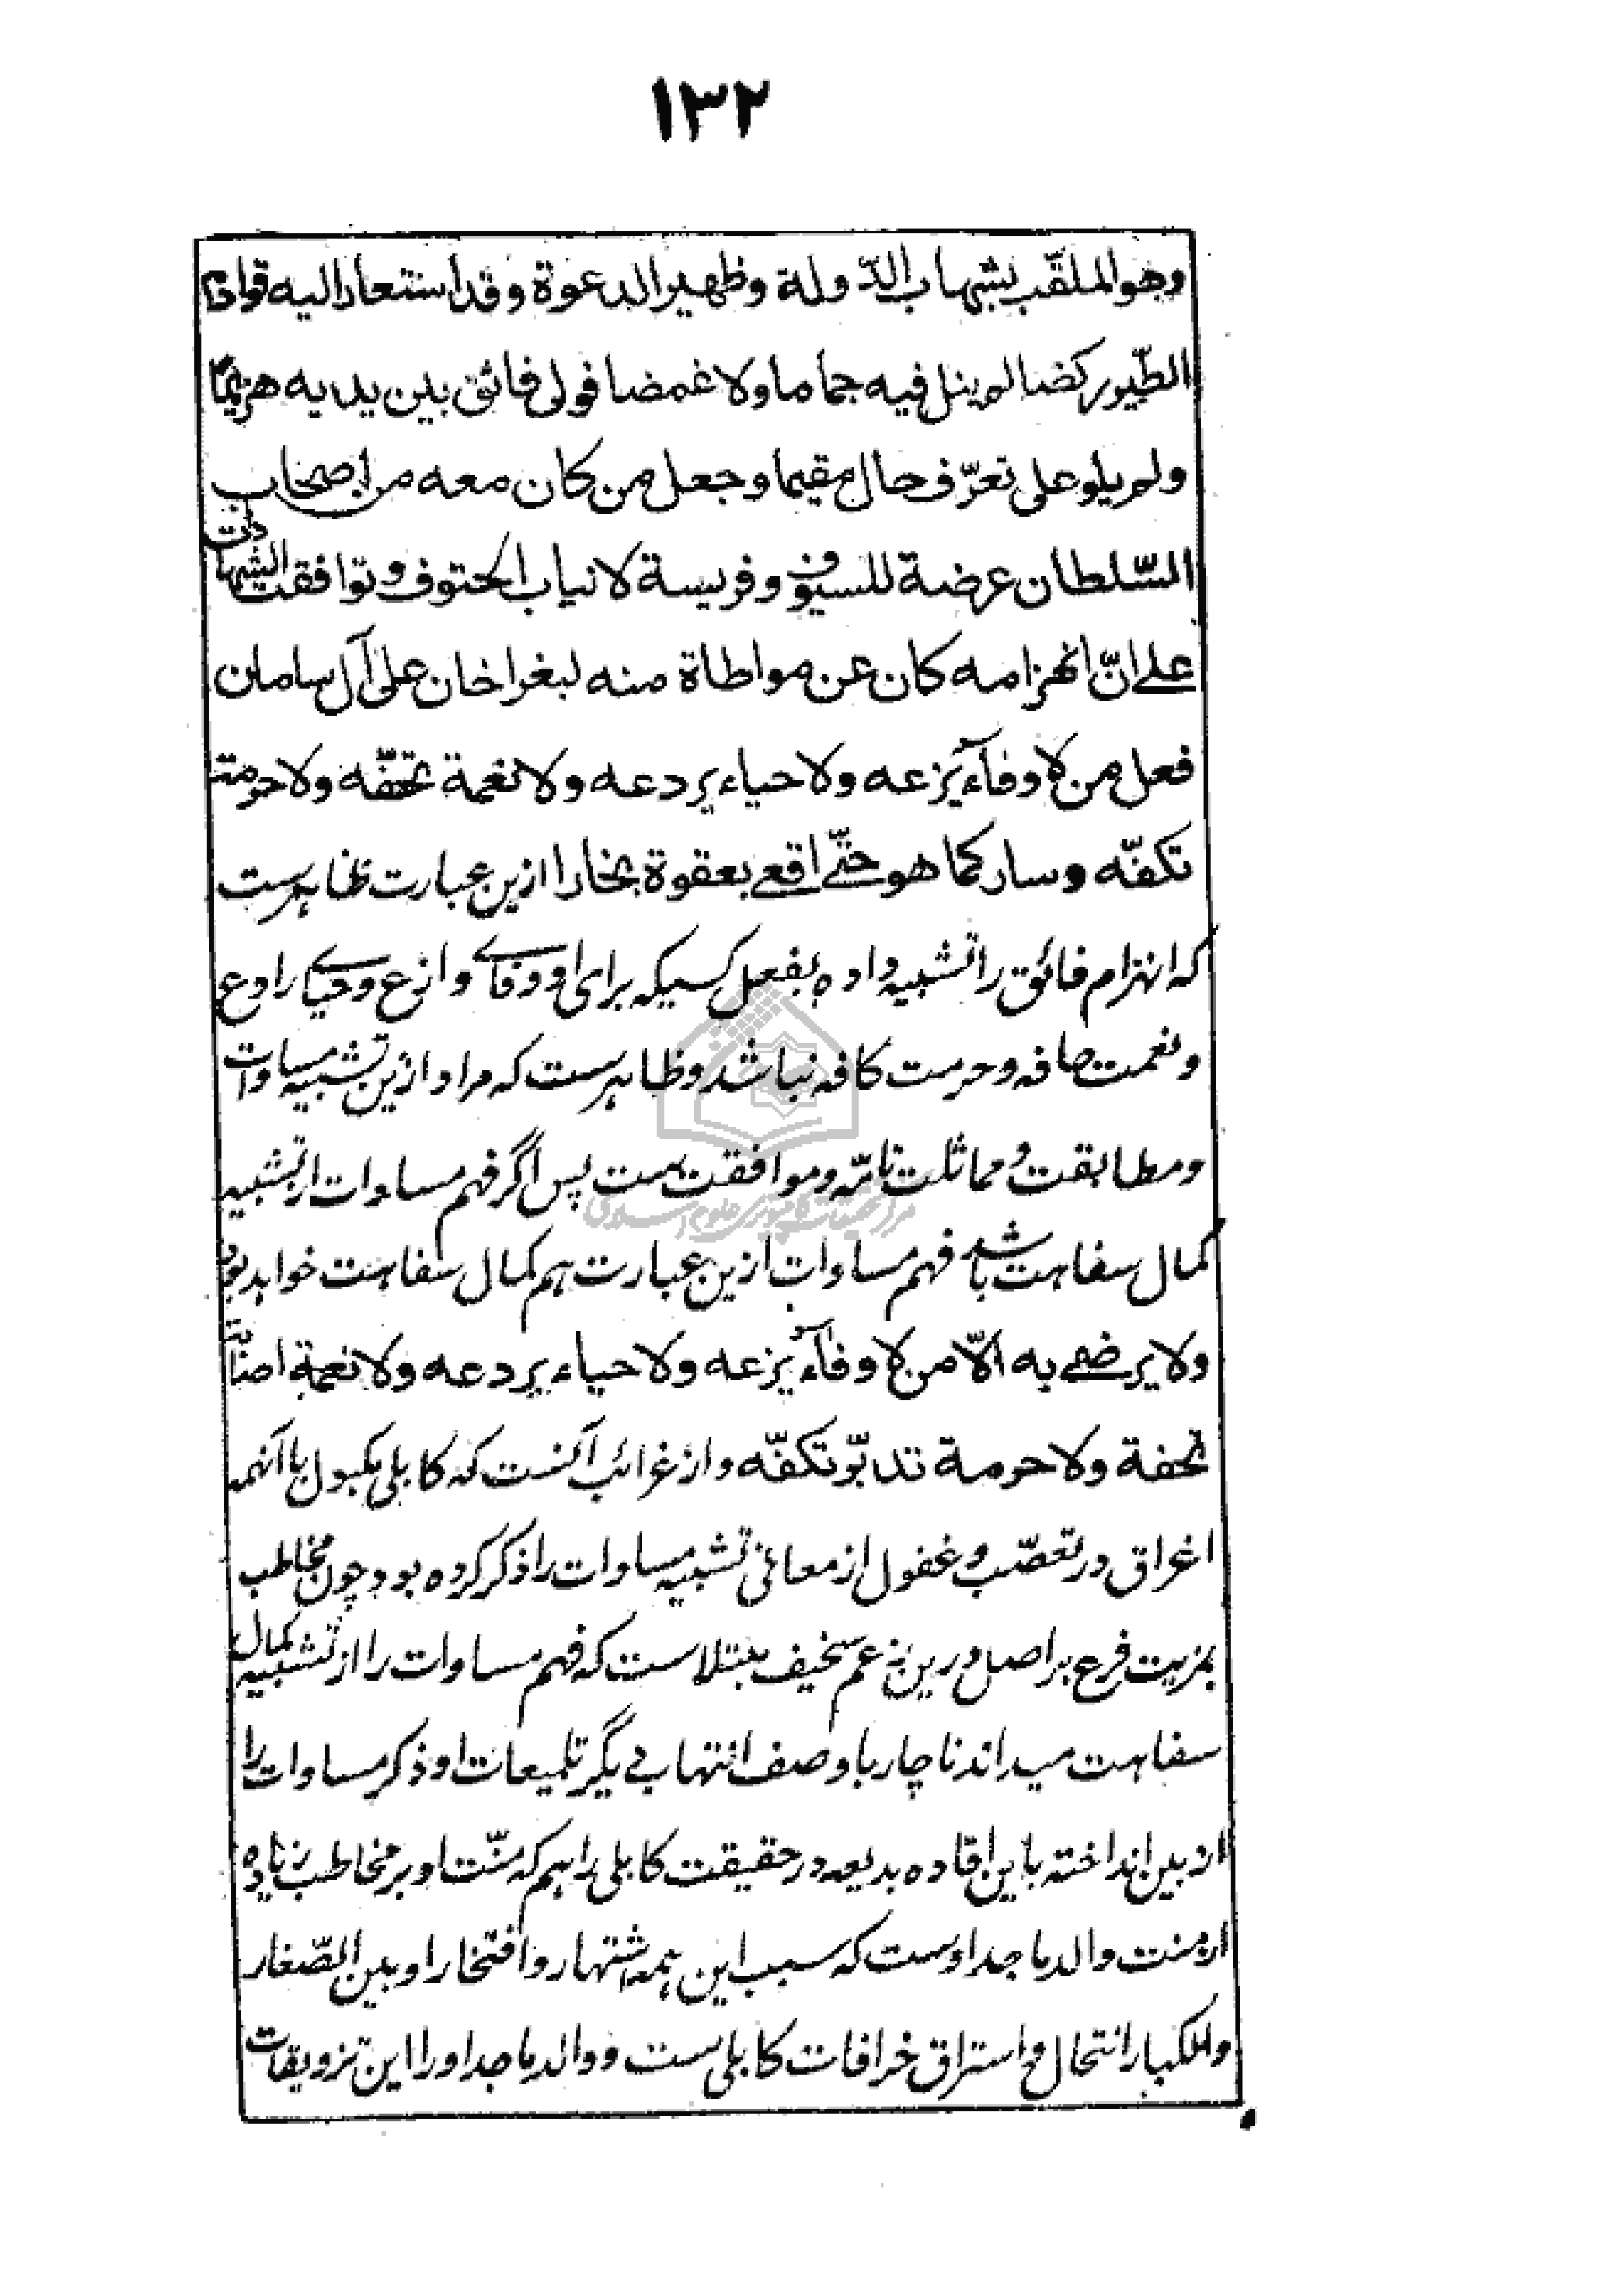 ١٣٢
وهو الملقّب بشهاب الدّولة وظهير الدعوة وقد استعار اليه قوادم
الطّيور ركضا لم ينل فيه جماما ولا غمضا فولى فائق بين يديه هزيمًا
ولم يلو على تعرّف حال مقيما وجعل من كان معه من اصحاب
السّلطان عرضة للسيوف وفريسة لانياب الحتوف وتوافقت الشهادات
على انّ انهزامه كان عن مواطاة منه لبغراخان على آل سامان
فعل من لا وفآء يزعه ولا حياء يردعه ولا نعمة تحفّه ولا حرمة
تكفّه وسار كما هو حتّى اقعى بعقوة بخارا ازين عبارت ظاهرست
كه انهزام فائق را تشبيه داده بفعل كسيكه براى او وفاے وازع وحياے رادع
ونعمت حافه وحرمت كافه نباشد وظاهرست كه مراد ازين تشبيه مساوات
ومطابقت ومماثلت تامّه وموافقت ست پس اگر فهم مساوات از تشبيه
كمال سفاهت باشد فهم مساوات ازين عبارت هم كمال سفاهت خواهد بود
ولا يرضى به الّا من لا وفآء يزعه ولا حياء يردعه ولا نعمة
تحفة ولا حرمة تدبّر تكفّه واز غرائب آنست كه كابلى بكبول با آنهمه
اغراق در تعصّب وغفول از معانى تشبيه مساوات را ذكر كرده بود وچون مخاطب
بمزيت فرع بر اصل درين زعم سخيف مبتلاست كه فهم مساوات را از تشبيه كمال
سفاهت ميداند ناچار با وصف انتهاب ديگر تلميعات او ذكر مساوات را
از بين انداخته باين افاده بديعه در حقيقت كابلى را هم كه منّت او بر مخاطب زياده
از منت والد ماجد اوست كه سبب اين همه اشتهار وافتخار او بين الصّغار
والكبار انتحال واستراق خرافات كابلى ست ووالد ماجد او را اين تزويقات